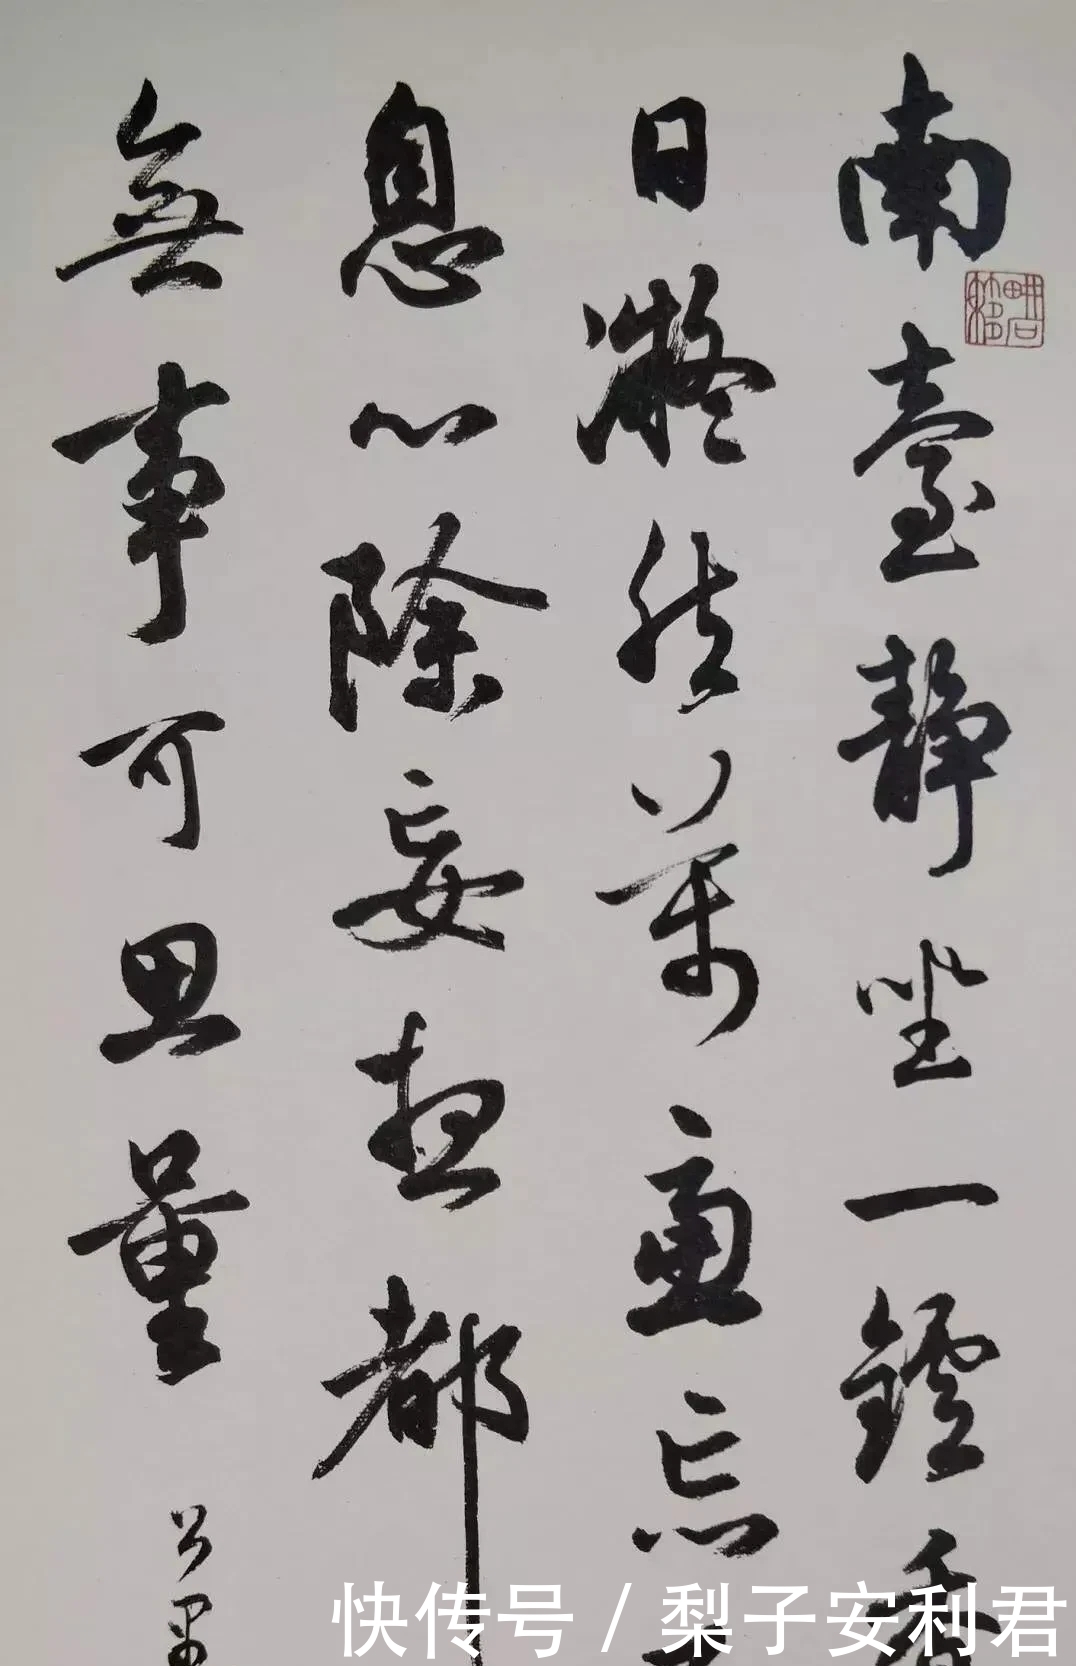 南臺靜坐一鑪香
日凝然萬慮忘
息心除妄想都
無事可思量
快传号 / 梨子安利君